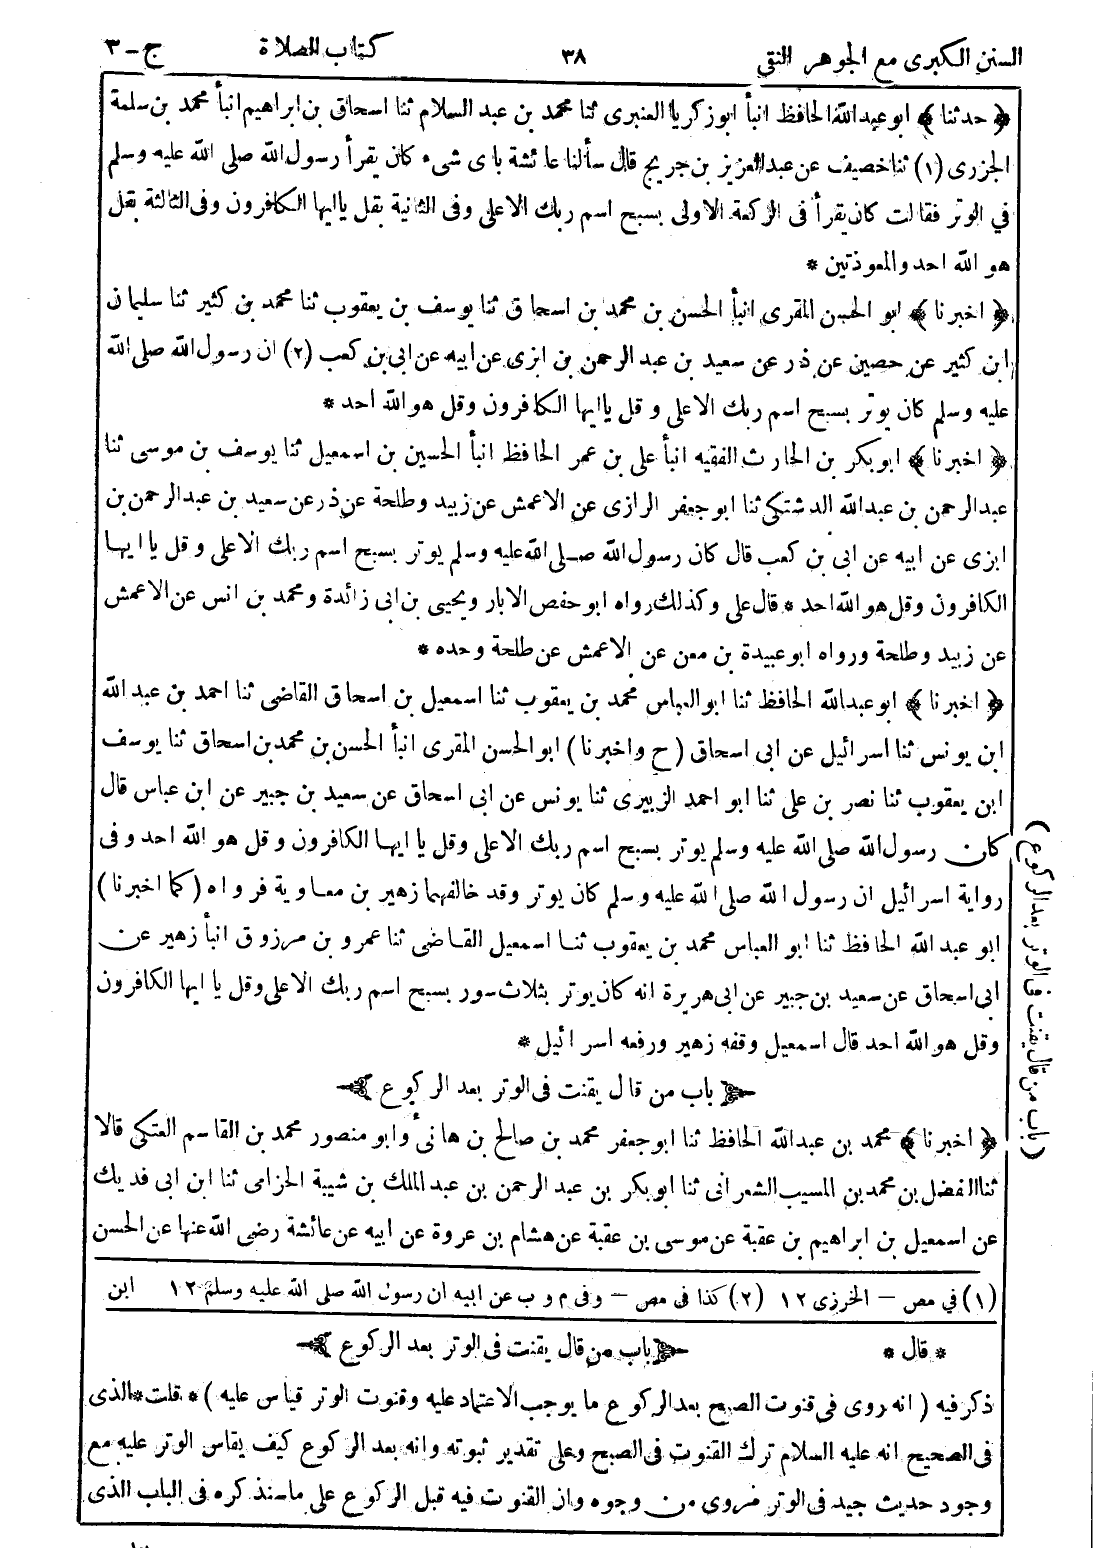 السنن الكبرى مع الجوهر النقى ٣٨ كتاب الصلاة ج-٣
﴿ حدثنا ﴾ ابو عبدالله الحافظ انبأ ابو زكريا العنبرى ثنا محمد بن عبد السلام ثنا اسحاق بن ابراهيم انبأ محمد بن سلمة
الجزرى (١) ثنا خصيف عن عبدالعزيز بن جريج قال سألنا عائشة باى شىء كان يقرأ رسول الله صلى الله عليه وسلم
في الوتر فقالت كان يقرأ فى الركعة الاولى بسبح اسم ربك الاعلى وفى الثانية بقل ياايها الكافرون وفى الثالثة بقل
هو الله احد والمعوذتين *
﴿ اخبرنا ﴾ ابو الحسن المقرى انبأ الحسن بن محمد بن اسحاق ثنا يوسف بن يعقوب ثنا محمد بن كثير ثنا سليمان
ابن كثير عن حصين عن ذر عن سعيد بن عبد الرحمن بن ابزى عن ابيه عن ابى بن كعب (٢) ان رسول الله صلى الله
عليه وسلم كان يوتر بسبح اسم ربك الاعلى وقل ياايها الكافرون وقل هو الله احد *
﴿ اخبرنا ﴾ ابوبكر بن الحارث الفقيه انبأ على بن عمر الحافظ انبأ الحسين بن اسمعيل ثنا يوسف بن موسى ثنا
عبدالرحمن بن عبدالله الدشتكى ثنا ابو جعفر الرازى عن الاعمش عن زبيد وطلحة عن ذر عن سعيد بن عبد الرحمن بن
ابزى عن ابيه عن ابى بن كعب قال كان رسول الله صلى الله عليه وسلم يوتر بسبح اسم ربك الاعلى وقل يا ايها
الكافرون وقل هو الله احد * قال على وكذلك رواه ابو حفص الابار ويحيى بن ابى زائدة ومحمد بن انس عن الاعمش
عن زبيد وطلحة ورواه ابو عبيدة بن معن عن الاعمش عن طلحة وحده *
﴿ اخبرنا ﴾ ابو عبدالله الحافظ ثنا ابو العباس محمد بن يعقوب ثنا اسمعيل بن اسحاق القاضى ثنا احمد بن عبد الله
ابن يونس ثنا اسرائيل عن ابى اسحاق ( ح واخبرنا ) ابو الحسن المقرى انبأ الحسن بن محمد بن اسحاق ثنا يوسف
ابن يعقوب ثنا نصر بن على ثنا ابو احمد الزبيرى ثنا يونس عن ابى اسحاق عن سعيد بن جبير عن ابن عباس قال
كان رسول الله صلى الله عليه وسلم يوتر بسبح اسم ربك الاعلى وقل يا ايها الكافرون وقل هو الله احد وفى
رواية اسرائيل ان رسول الله صلى الله عليه وسلم كان يوتر وقد خالفهما زهير بن معاوية فرواه ( كما اخبرنا )
ابو عبد الله الحافظ ثنا ابو العباس محمد بن يعقوب ثنا اسمعيل القاضى ثنا عمرو بن مرزوق انبأ زهير عن
ابى اسحاق عن سعيد بن جبير عن ابى هريرة انه كان يوتر بثلاث سور بسبح اسم ربك الاعلى وقل يا ايها الكافرون
وقل هو الله احد قال اسمعيل وقفه زهير ورفعه اسرائيل *
باب من قال يقنت فى الوتر بعد الركوع
﴿ اخبرنا ﴾ محمد بن عبدالله الحافظ ثنا ابو جعفر محمد بن صالح بن هانئ وابو منصور محمد بن القاسم العتكى قالا
ثنا الفضل بن محمد بن المسيب الشعرانى ثنا ابو بكر بن عبد الرحمن بن عبد الملك بن شيبة الحزامى ثنا ابن ابى فديك
عن اسمعيل بن ابراهيم بن عقبة عن موسى بن عقبة عن هشام بن عروة عن ابيه عن عائشة رضى الله عنها عن الحسن
(باب من قال يقنت فى الوتر بعد الركوع)
(١) في مص - الخرزى ١٢ (٢) كذا فى مص - وفى م و ب عن ابيه ان رسول الله صلى الله عليه وسلم ١٢ ابن
* قال * باب من قال يقنت فى الوتر بعد الركوع
ذكر فيه ( انه روى فى قنوت الصبح بعد الركوع ما يوجب الاعتماد عليه وقنوت الوتر قياس عليه ) * قلت * الذى
فى الصحيح انه عليه السلام ترك القنوت فى الصبح وعلى تقدير ثبوته وانه بعد الركوع كيف يقاس الوتر عليه مع
وجود حديث جيد فى الوتر مروى من وجوه وان القنوت فيه قبل الركوع على ما سنذكره فى الباب الذى